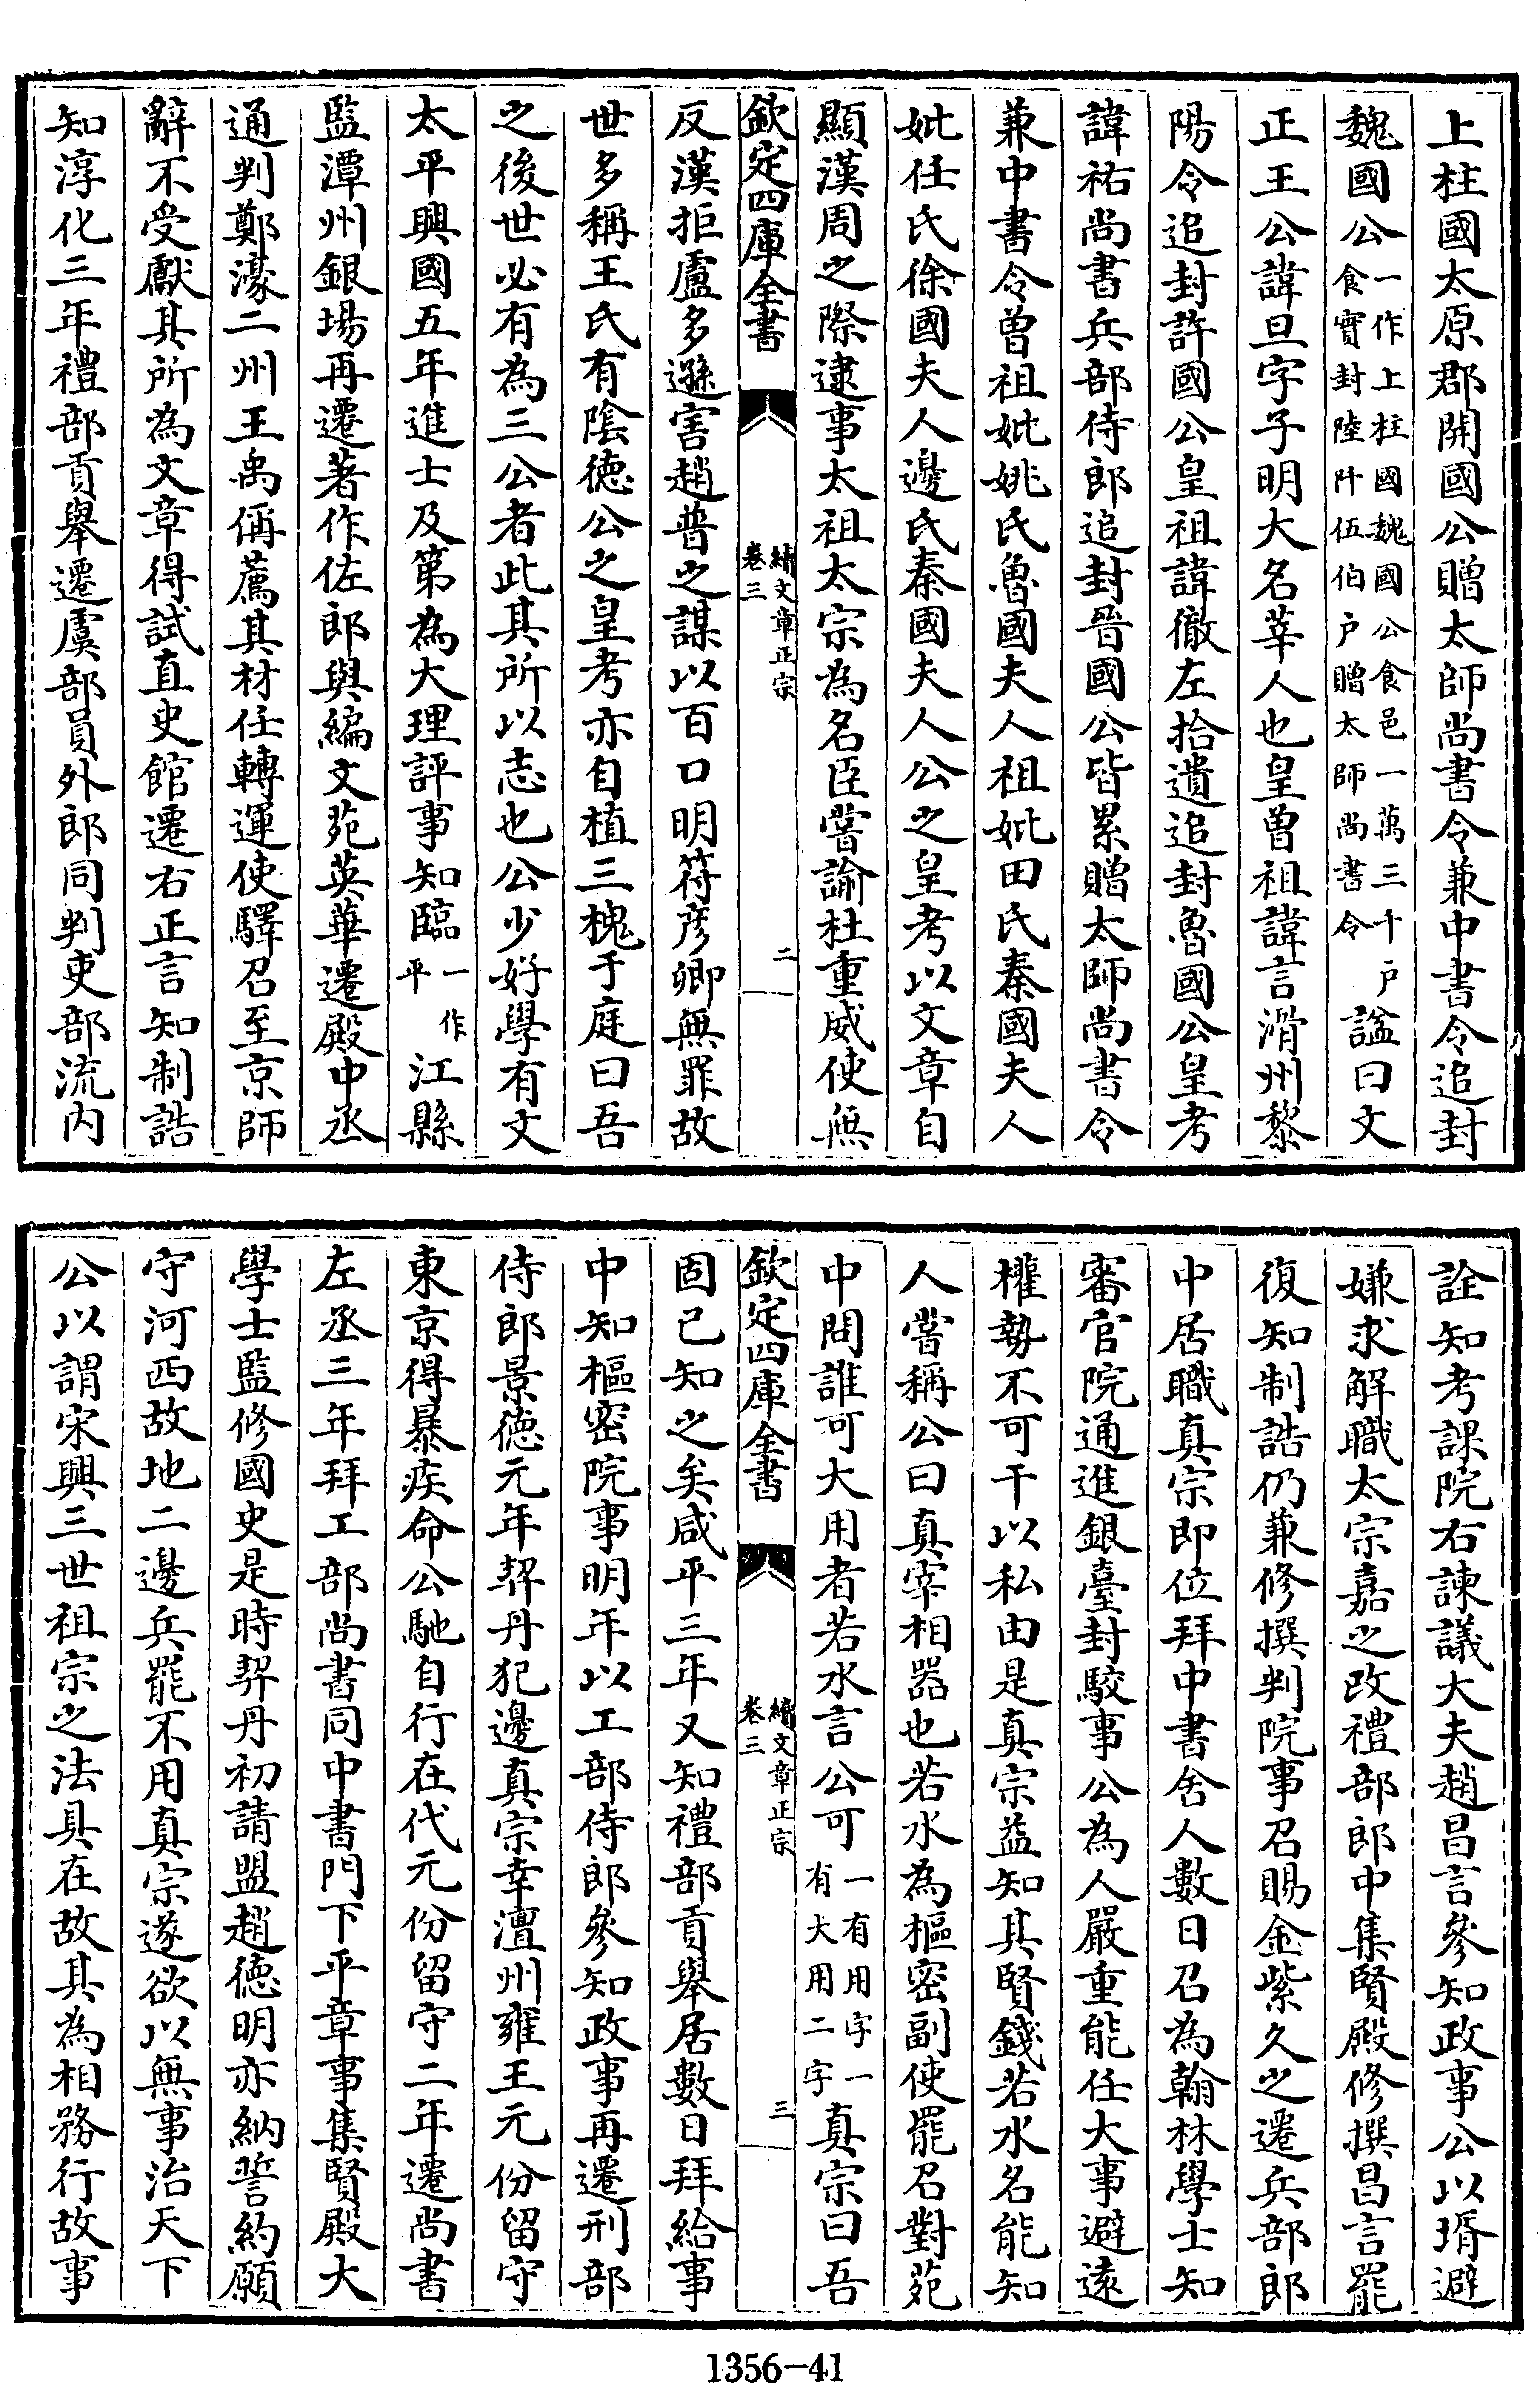 上柱國太原郡開國公贈太師尚書令兼中書令追封
魏國公一作上柱國魏國公食邑一萬三千户食實封陸阡伍伯户贈太師尚書令諡曰文
正王公諱旦字子明大名莘人也皇曽祖諱言滑州黎
陽令追封許國公皇祖諱徹左拾遺追封魯國公皇考
諱祐尚書兵部侍郎追封晉國公皆累贈太師尚書令
兼中書令曽祖妣姚氏魯國夫人祖妣田氏秦國夫人
妣任氏徐國夫人邊氏秦國夫人公之皇考以文章自
顯漢周之際逮事太祖太宗為名臣嘗諭杜重威使無
欽定四庫全書
續文章正宗
卷三
二
反漢拒盧多遜害趙普之謀以百口明符彦卿無罪故
世多稱王氏有隂徳公之皇考亦自植三槐于庭曰吾
之後世必有為三公者此其所以志也公少好學有文
太平興國五年進士及第為大理評事知臨一作平江縣
監潭州銀場再遷著作佐郎與編文苑英華遷殿中丞
通判鄭濠二州王禹偁薦其材任轉運使驛召至京師
辭不受獻其所為文章得試直史館遷右正言知制誥
知淳化三年禮部貢舉遷虞部員外郎同判吏部流内
詮知考課院右諫議大夫趙昌言參知政事公以壻避
嫌求解職太宗嘉之改禮部郎中集賢殿修撰昌言罷
復知制誥仍兼修撰判院事召賜金紫久之遷兵部郎
中居職真宗即位拜中書舍人數日召為翰林學士知
審官院通進銀臺封駁事公為人嚴重能任大事避逺
權勢不可干以私由是真宗益知其賢錢若水名能知
人嘗稱公曰真宰相器也若水為樞密副使罷召對苑
中問誰可大用者若水言公可一有用字一有大用二字真宗曰吾
欽定四庫全書
續文章正宗
卷三
三
固已知之矣咸平三年又知禮部貢舉居數日拜給事
中知樞密院事明年以工部侍郎參知政事再遷刑部
侍郎景徳元年契丹犯邊真宗幸澶州雍王元份留守
東京得暴疾命公馳自行在代元份留守二年遷尚書
左丞三年拜工部尚書同中書門下平章事集賢殿大
學士監修國史是時契丹初請盟趙徳明亦納誓約願
守河西故地二邊兵罷不用真宗遂欲以無事治天下
公以謂宋興三世祖宗之法具在故其為相務行故事
1356-41